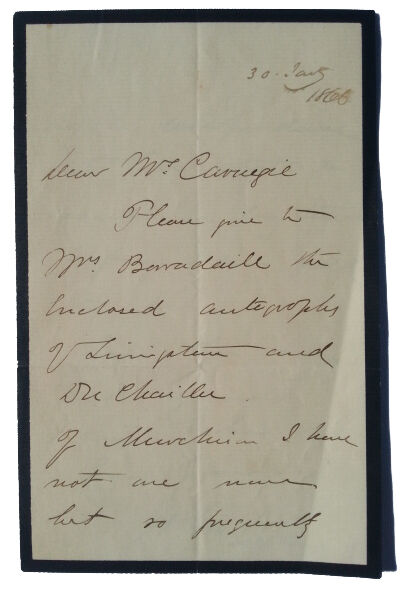 30. Jany
1866
Dear Mrs. Carnegie
Please give to
Mrs. Borradaile the
enclosed autographs
of Livingstone and
Du Chaillu.
of Murchison I have
not one now
but so frequently